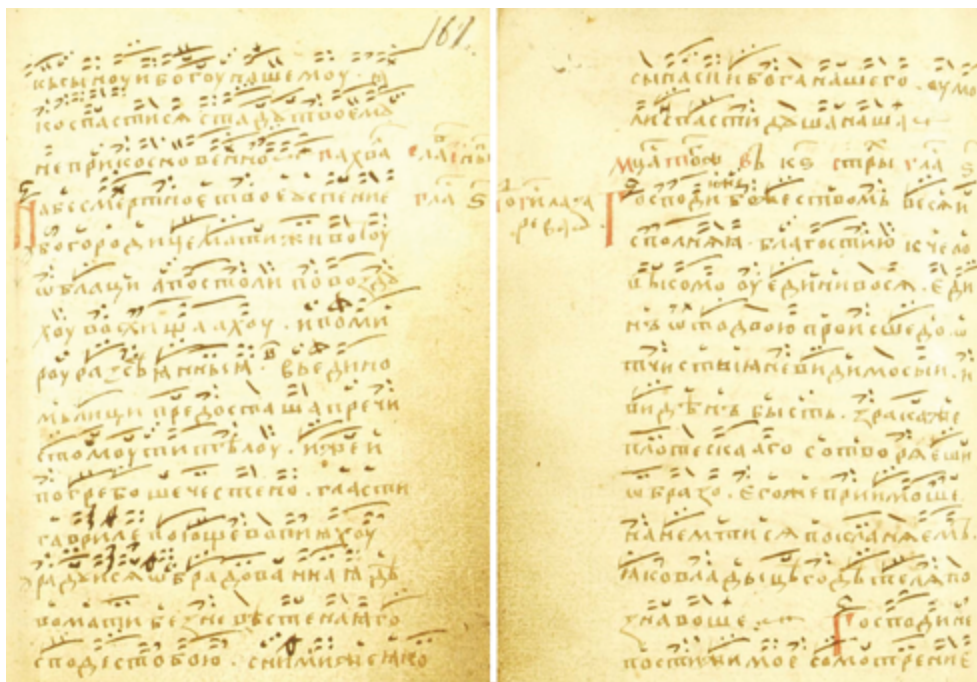 167.
къ сыноу и богоу нашемоу . и
ко спастися стадꙋ твоемꙋ
не прикосновенно
гла ѕ
На бесмертное твое ꙋспение
богородице мати животоу
ѡблаци апостоли по воздꙋ
хоу восхищаахоу . и по ми
роу разсѣянныя . въ едино
мь лици предосташа пречи
стомоу ти тѣлоу . иже и
погребоше честено . гласъ ти
гавриле поюще вопияхоу
радꙋися ѡбрадованная дѣ
во мати безневѣстеная го
сподь с тобою . с ними же яко
съпаси и бога нашего . ꙋмо
ли спасти дꙋша наша
въ кѕ стры гла ѕ
Господи божествомъ вся и
сполняя . благостию к чело
въ ѡтъ двою происшедо . ѡ
тчистыя невидимо сыи . и
видѣнъ бысть . зракаже
плотескааго сотворяеши
ѡбразо . егоже приимоше
на нем ти ся покланяемъ .
яко владыцѣ содѣтеля по
знавоше . Господи не
постижимое сомотрение